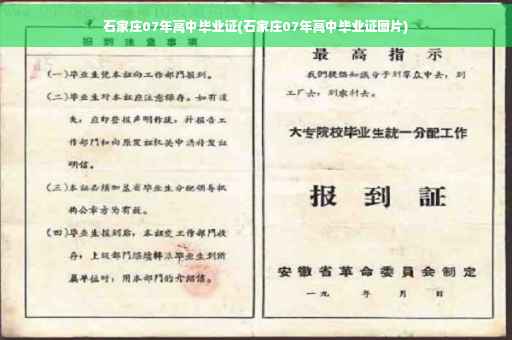 石家庄07年高中毕业证(石家庄07年高中毕业证图片)
报到注意事项
(一)毕业生凭本证向工作部门报到。
(二)毕业生对本证应注意保存。如有遗
失,应即登报声明作废,并报告工
作部门和向原发证机关申请补发证
明信。
(三)本证必须加盖省毕业生分配领导机
构公章方为有效。
(四)毕业生报到后,本证交工作部门收
存;上级部门继续转派毕业生到所
属单位时,用本部门的介绍信。
最高指示
我们提倡知识分子到群众中去,到
工厂去,到农村去。
大专院校毕业生统一分配工作
报到证
安徽省革命委员会制定
一九 年 月 日